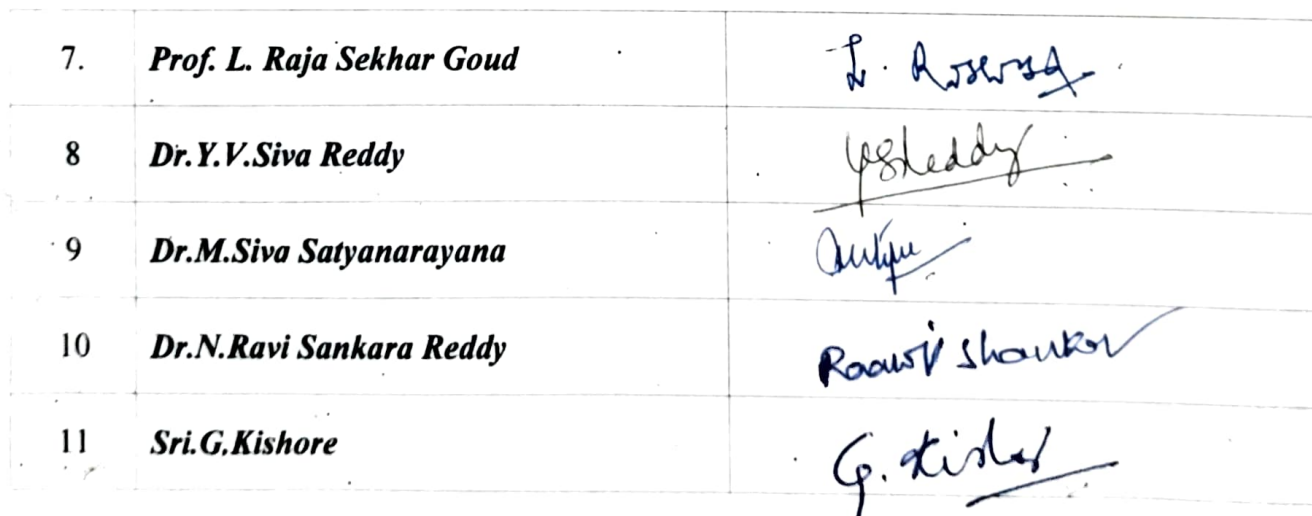 7. Prof. L. Raja Sekhar Goud
8 Dr.Y.V.Siva Reddy YSReddy
9 Dr.M.Siva Satyanarayana
10 Dr.N.Ravi Sankara Reddy Raavi Shankar
11 Sri.G.Kishore G. Kishor